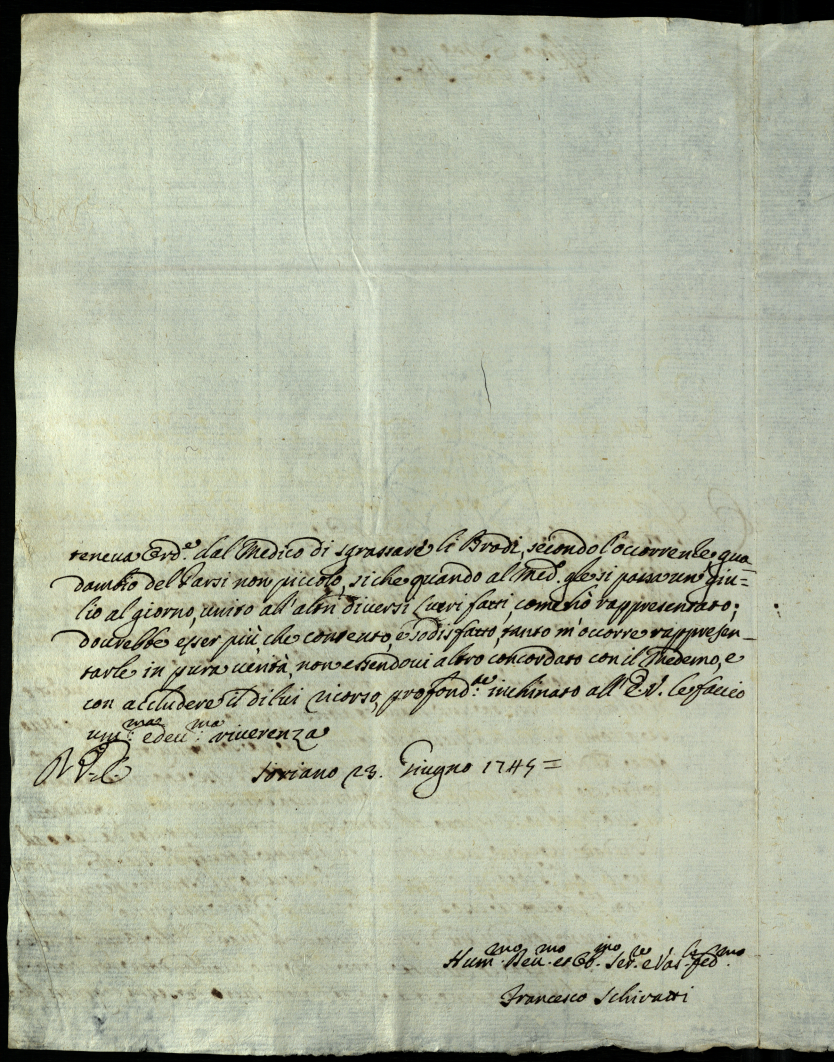 teneva Ord.e dal Medico di sgrassare li Brodi, secondo l'occorrenle, gua=
dambio del Farsi non piccolo, siche quando al Med. gle si passa un giu=
lio al giorno, unito all'altri diversi lucri fatti, come hò rappresentato;
dourebbe esser più, che contento, e sodisfatto, tanto m'occorre rappresen=
tarle in pura verità, non essendovi altro concordato con il Medemo, e
con accludere il di lui ricorso, profond.te inchinato all'E.V. le faccio
um.mae e deu.ma riverenza
Soriano 23. Giugno 1745=
Hum.mo Deu.mo et Ob.mo Ser.re e Vas.lo fed.mo
Francesco Schivatti